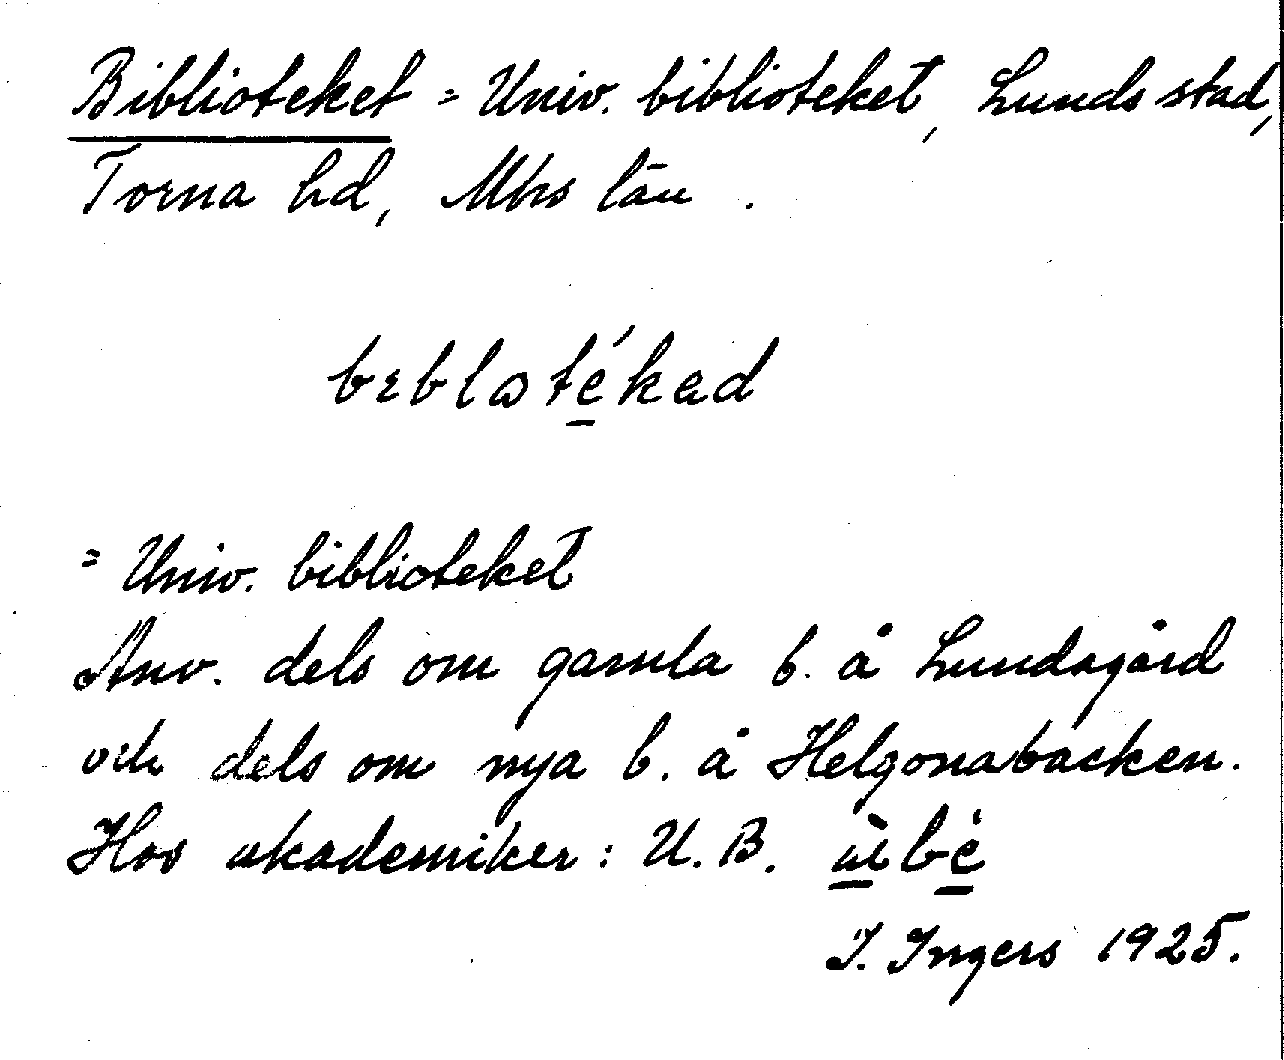 Biblioteket = Univ. biblioteket, Lunds stad,
Torna hd, Mhs län.
bɛblωtékəd
= Univ. biblioteket
Anv. dels om gamla b. å Lundagård
och dels om nya b. å Helgonabacken.
Hos akademiker: U. B. ùbé
I. Ingers 1925.